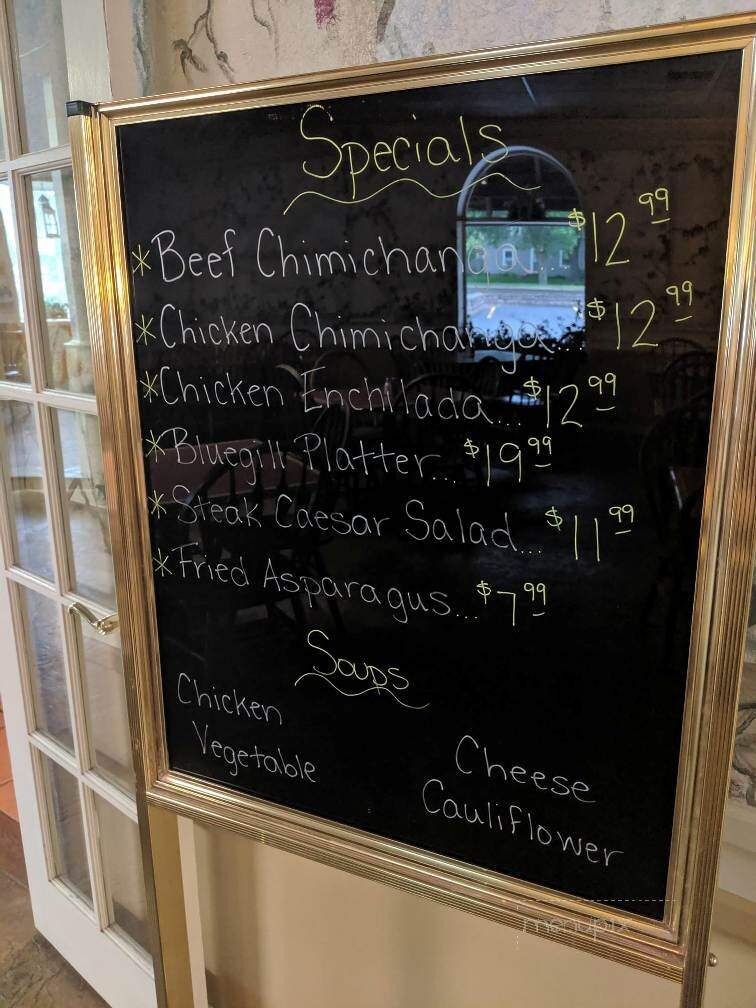 Specials
*Beef Chimichanga... $12.99
*Chicken Chimichanga... $12.99
*Chicken Enchilada... $12.99
*Bluegill Platter... $19.99
*Steak Caesar Salad... $11.99
*Fried Asparagus... $7.99
Soups
Chicken
Vegetable
Cheese
Cauliflower
menupix